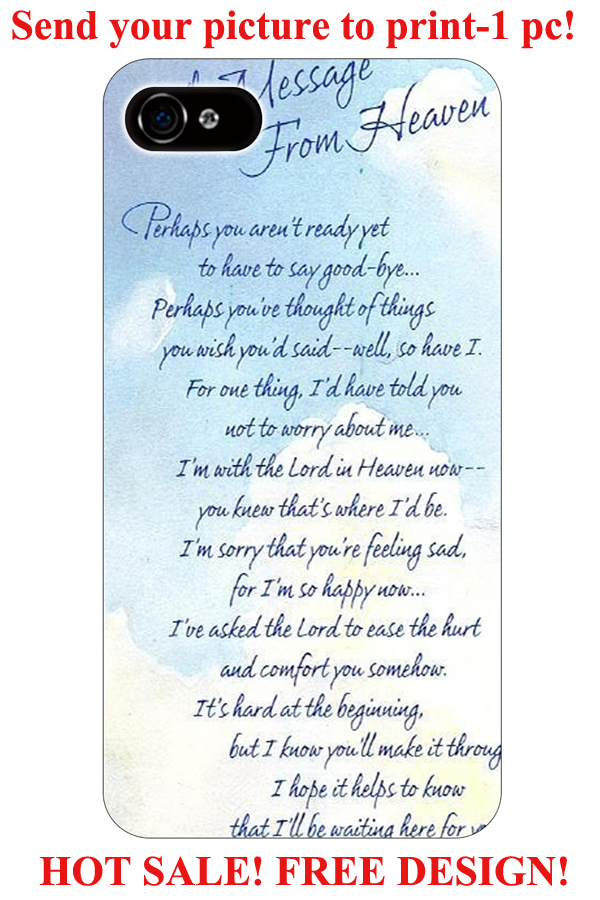 Send your picture to print-1 pc!
Message
From Heaven
Perhaps you aren't ready yet
to have to say good-bye...
Perhaps you've thought of things
you wish you'd said--well, so have I.
For one thing, I'd have told you
not to worry about me...
I'm with the Lord in Heaven now--
you knew that's where I'd be.
I'm sorry that you're feeling sad,
for I'm so happy now...
I've asked the Lord to ease the hurt
and comfort you somehow.
It's hard at the beginning,
but I know you'll make it throug
I hope it helps to know
that I'll be waiting here for
HOT SALE! FREE DESIGN!